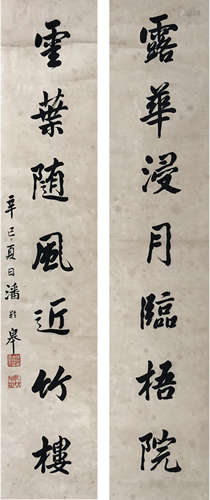 露華浸月臨梧院
雲葉随風近竹樓
辛巳夏日潘齡皋